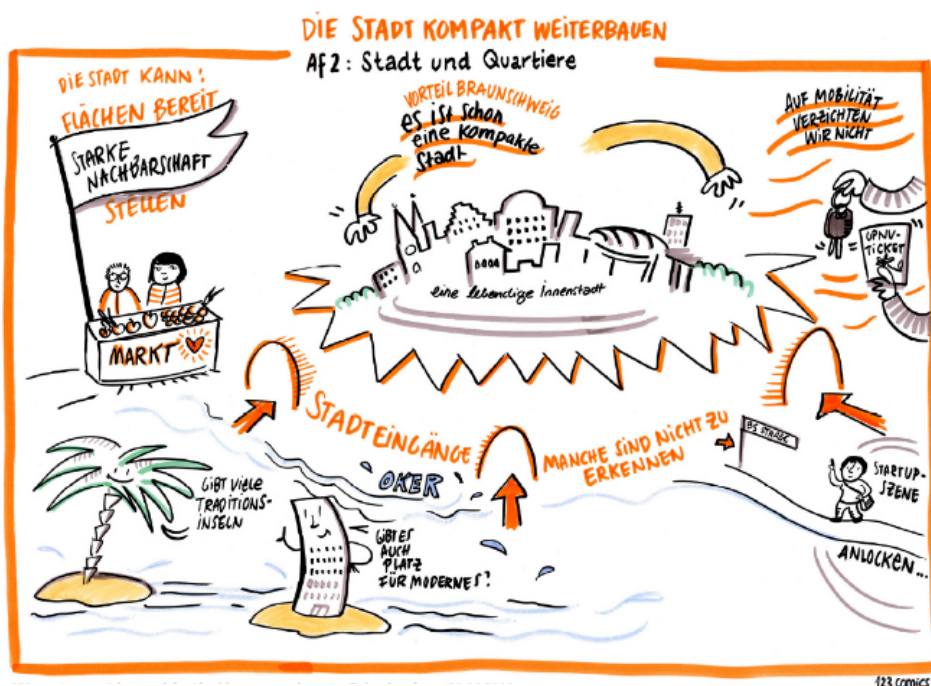 DIE STADT KOMPAKT WEITERBAUEN
AF2: Stadt und Quartiere
DIE STADT KANN:
FLÄCHEN BEREIT
STARKE
NACHBARSCHAFT
STELLEN
MARKT
VORTEIL BRAUNSCHWEIG
es ist schon
eine kompakte
Stadt
eine lebendige Innenstadt
AUF MOBILITÄT
VERZICHTEN
WIR NICHT
ÖPNV-
TICKET
STADTEINGÄNGE
MANCHE SIND NICHT ZU
ERKENNEN
BS STRAßE
STARTUP-
SZENE
ANLOCKEN...
OKER
GIBT VIELE
TRADITIONS-
INSELN
GIBT ES
AUCH
PLATZ
FÜR MODERNES?
123 comics